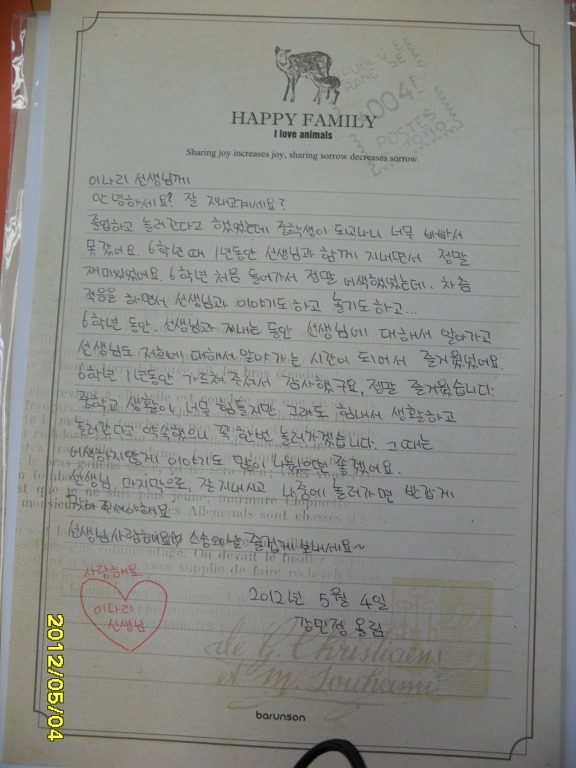 HAPPY FAMILY
I love animals
Sharing joy increases joy, sharing sorrow decreases sorrow.
이나리 선생님께
안녕하세요? 잘 지내고계세요?
졸업하고 놀러간다고 했었는데 중학생이 되고나니 너무 바빠서
못갔어요. 6학년 때 1년동안 선생님과 함께 지내면서 정말
재미있었어요. 6학년 처음 들어가서 정말 어색했었는데, 차츰
적응을 하면서 선생님과 이야기도 하고 놀기도 하고...
6학년 동안, 선생님과 지내는 동안 선생님에 대해서 알아가고
선생님도 저희에 대해서 알아가는 시간이 되어서 즐거웠었어요.
6학년 1년동안 가르쳐 주셔서 감사했구요, 정말 즐거웠습니다.
중학교 생활이 너무 힘들지만, 그래도 힘내서 생활하고
놀러간다고 약속했으니 꼭 한번 놀러가겠습니다. 그 때는
어색하지않게 이야기도 많이 나눴으면 좋겠어요.
선생님, 마지막으로, 잘 지내시고 나중에 놀러가면 반갑게
맞아 주셔야해요
선생님사랑해요 스승의날 즐겁게 보내세요~
사랑해요.
이나리
선생님
2012년 5월 4일
강민정 올림
de G. Christiaens
et M. Touhami
barunson
2012/05/04